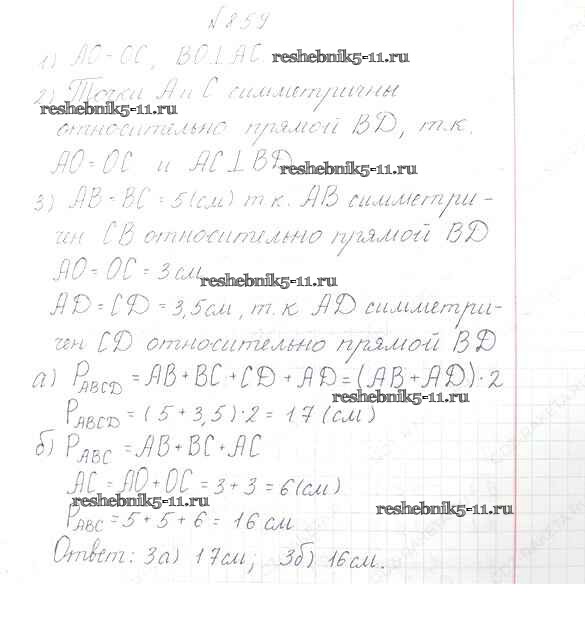 №859
1) AO=OC, BO⊥AC. reshebnik5-11.ru
2) Точки A и C симметричны
reshebnik5-11.ru
относительно прямой BD, т.к.
AO=OC и AC⊥BD reshebnik5-11.ru
3) AB=BC=5(см) т.к. AB симметри-
чен CB относительно прямой BD
AO=OC=3см reshebnik5-11.ru
AD=CD=3,5см, т.к AD симметри-
чен CD относительно прямой BD
а) P_ABCD=AB+BC+CD+AD=(AB+AD)·2
reshebnik5-11.ru
P_ABCD=(5+3,5)·2=17(см)
б) P_ABC=AB+BC+AC
AC=AO+OC=3+3=6(см)
reshebnik5-11.ru
P_ABC=5+5+6=16см reshebnik5-11.ru
Ответ: 3а) 17см; 3б) 16см.